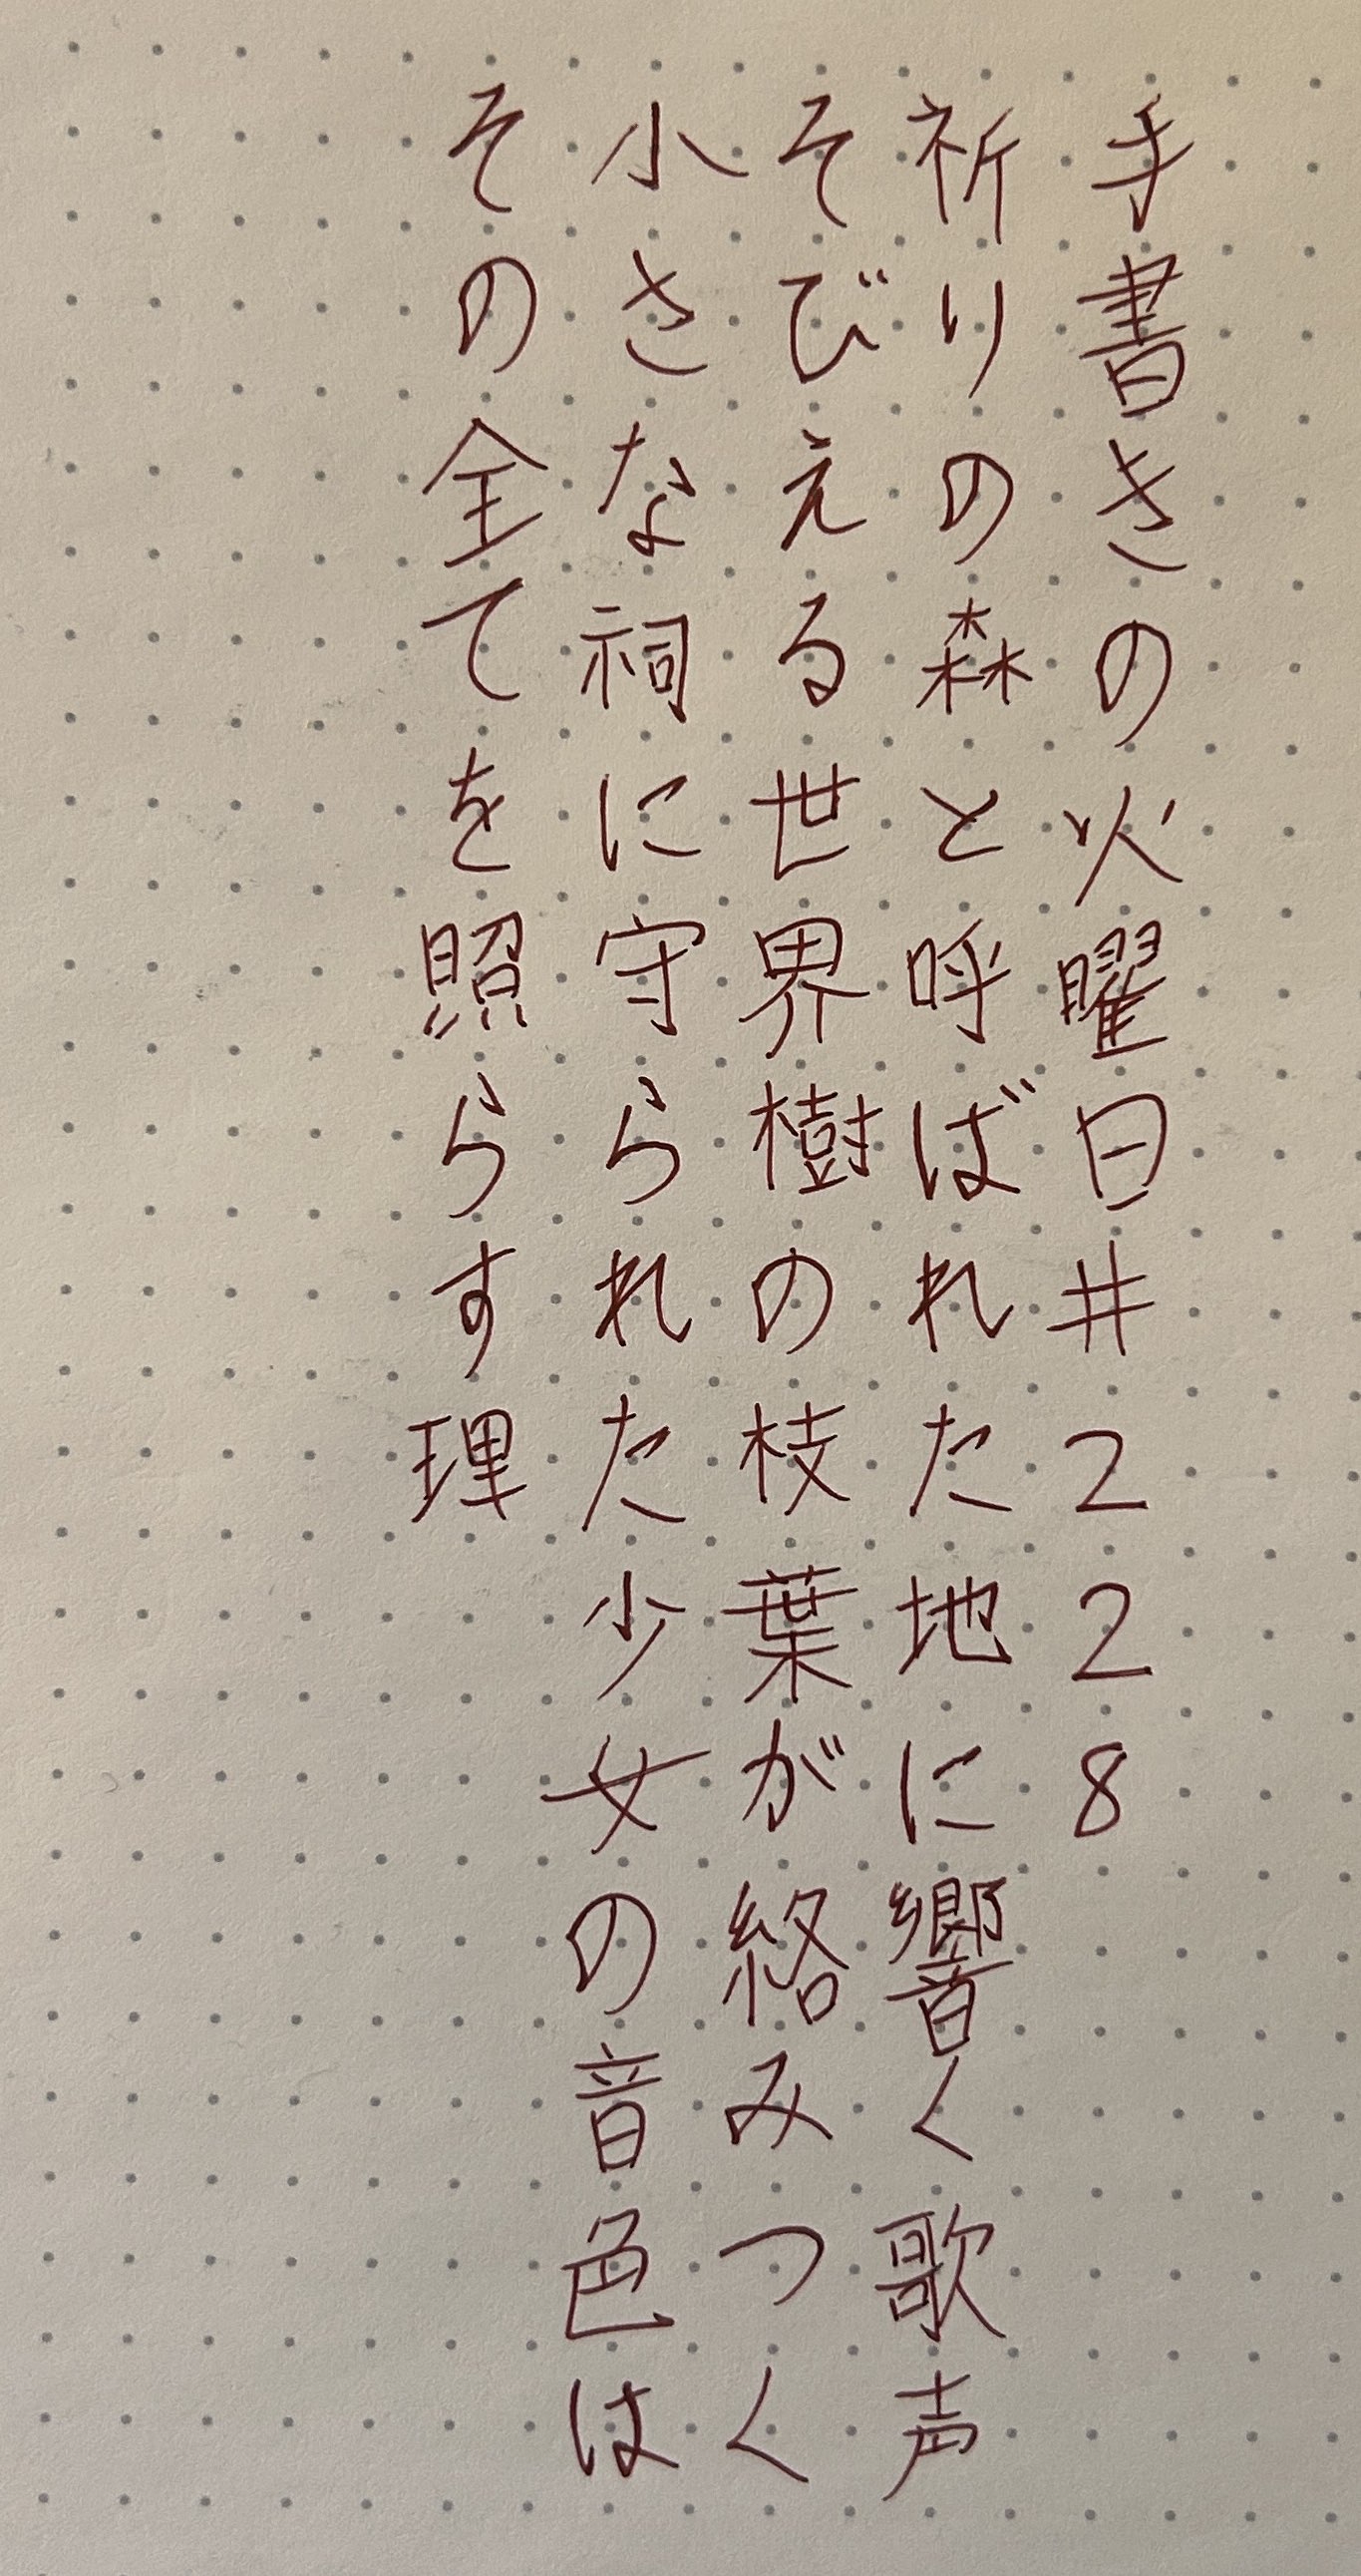 手書きの火曜日#228
祈りの森と呼ばれた地に響く歌声
そびえる世界樹の枝葉が絡みつく
小さな祠に守られた少女の音色は
その全てを照らす理